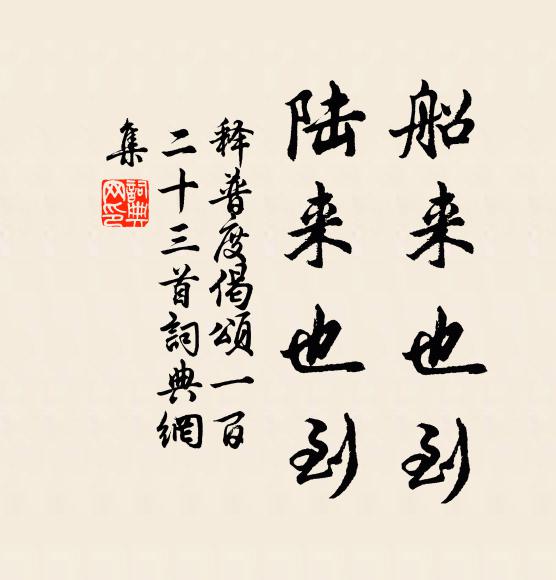 船来也到
陆来也到
释普度偈颂一百
二十三首詞典網
集
詞典
网印